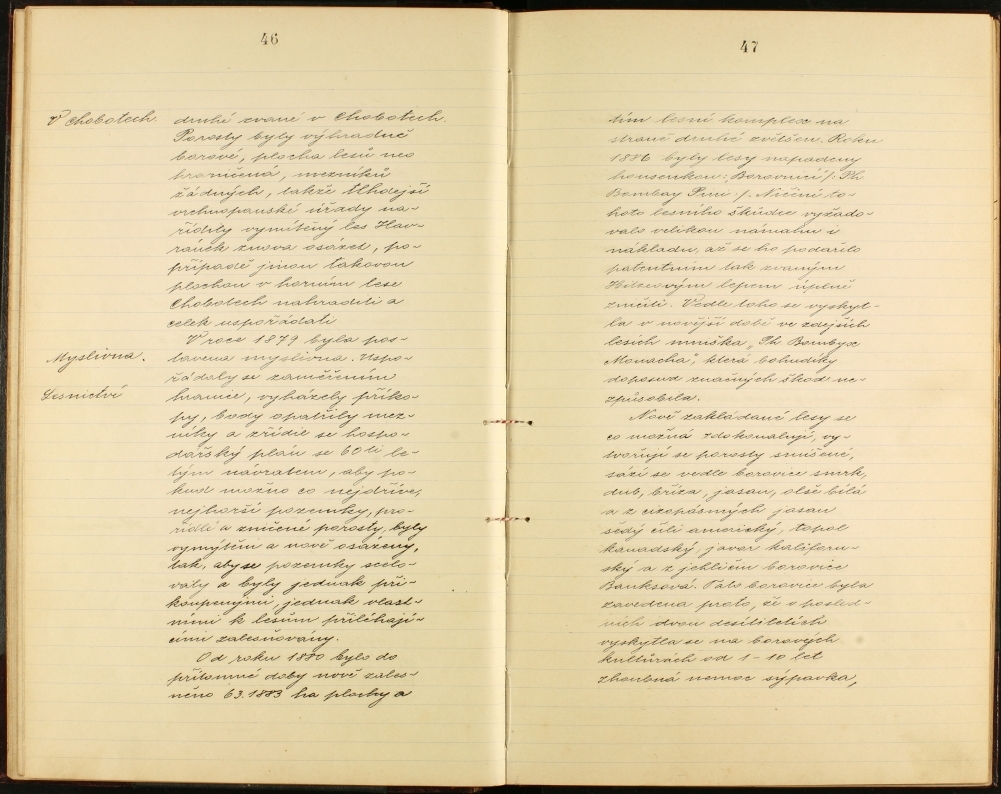 46
V Chobotech.
druhé zvané v Chobotech.
Porosty byly výhradně
borové, plocha lesů neo
hraničená, mezníků
žádných, takže tehdejší
vrchnopanské úřady na-
řídily vymítěný les Hav-
ránek znova osázet, po-
případě jinou takovou
plochou v horním lese
Chobotech nahraditi a
celek uspořádati
V roce 1879 byla pos-
Myslivna.
tavena myslivna. Uspo-
řádaly se zaměřením
Lesnictví
hranic, vyházely příko-
py, body opatřily mez-
níky a zřídil se hospo-
dářský plán se 60ti le-
tým návratem, aby po-
kud možno co nejdříve,
nejhorší pozemky, pro-
řídlé a zničené porosty, byly
vymýtěni a nově osázeny,
tak, aby se pozemky scelo-
valy a byly jednak při-
koupenými, jednak vlast-
ními k lesům přiléhají-
cími zalesňovány.
Od roku 1880 bylo do
přítomné doby nově zales-
něno 63.1883 ha plochy a
47
tím lesní komplex na
straně druhé zvětšen. Roku
1886 byly lesy napadeny
housenkou: Borovnicí /: Ph
Bombay Pini :/. Ničení to-
hoto lesního škůdce vyžado-
valo velikou námahu i
nákladu, až se ho podařilo
patentním tak zvaným
lepem úplně
zničiti. Vedle toho se vyskyt-
la v novější době ve zdejších
lesích mniška „Ph. Bombyx
Monacha", která bohudíky
doposud značných škod ne-
způsobila.
Nově zakládané lesy se
co možná zdokonalují, vy-
tvořují se porosty smíšené,
sází se vedle borovice smrk,
dub, bříza, jasan, olše bílá
a z cizopásmých jasan
šedý čili americký, topol
kanadský, javor kaliforn-
ský a z jehličin borovice
Banksová. Tato borovice byla
zavedena proto, že v posled-
ních dvou desítiletích
vyskytla se na borových
kultůrách od 1-10 let
zhoubná nemoc sypavka,